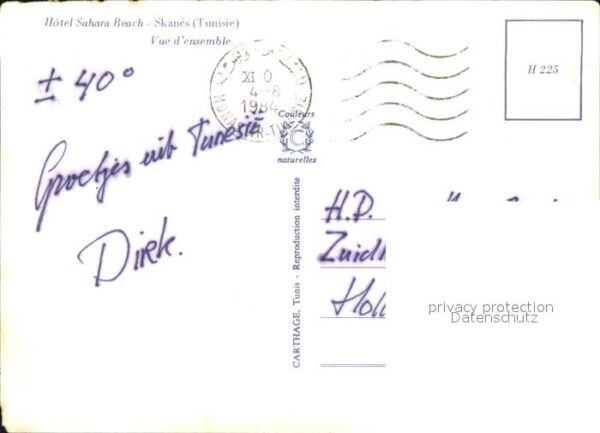 Hôtel Sahara Beach - Skanès (Tunisie)
Vue d'ensemble
± 40°
Groetjes uit Tunesië
Dirk.
XI 0
4-8
1984
Couleurs
naturelles
CARTHAGE, Tunis - Reproduction interdite
H 225
H.D.
privacy protection
Datenschutz